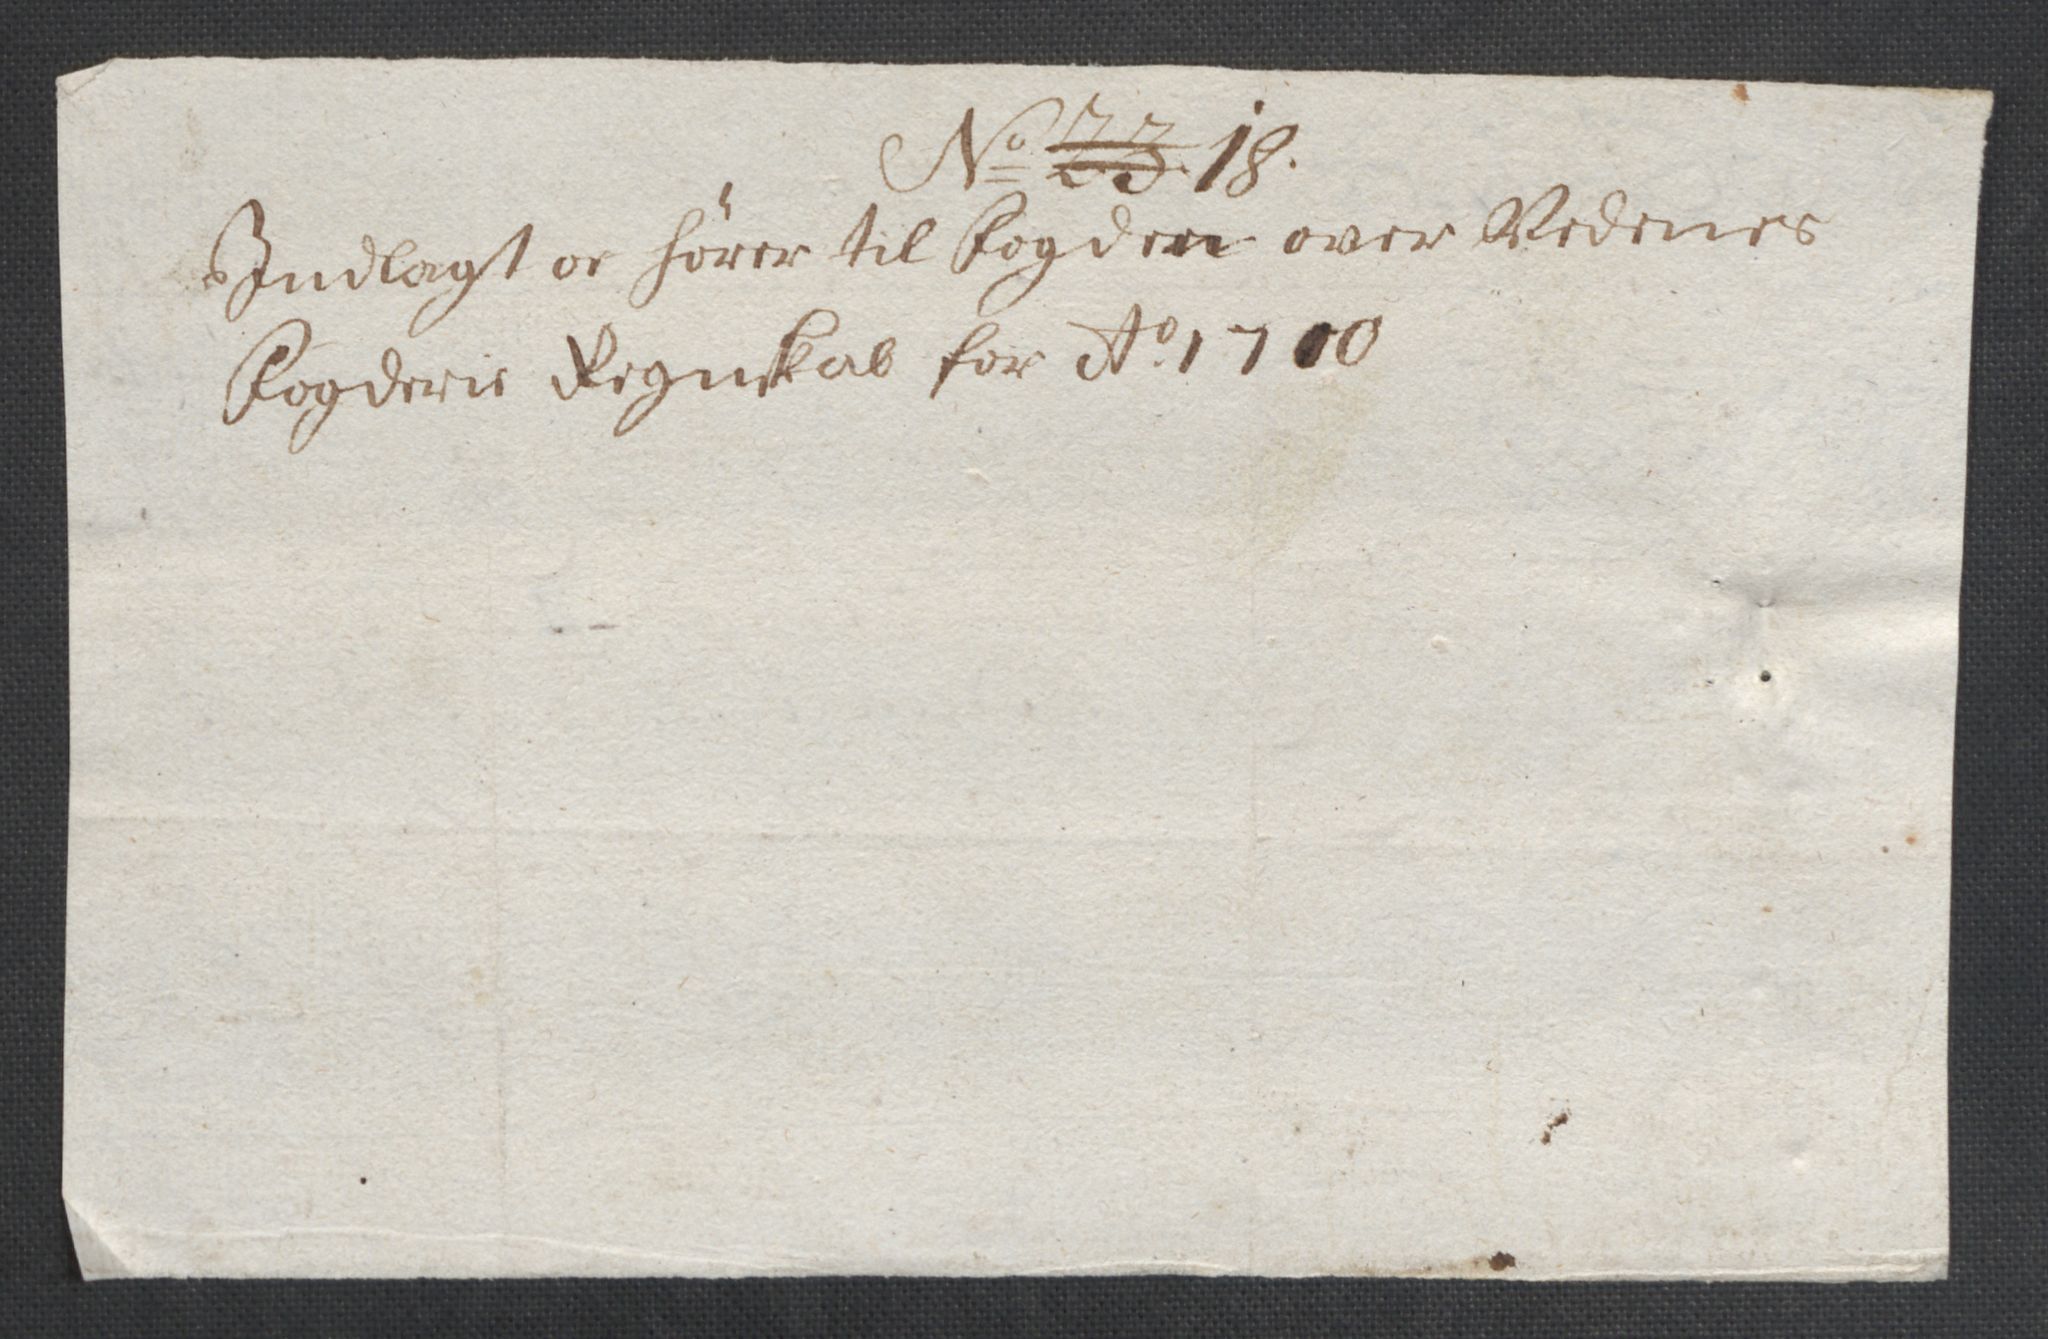 No 23. 18.
Indlagt oc hører til Fogden over Nedenes
Fogderie Regnskab for Ao 1710